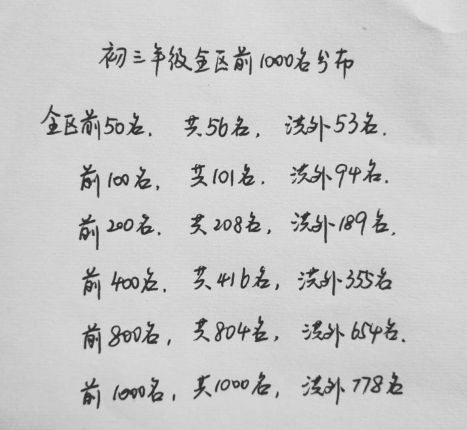 初三年级全区前1000名分布
全区前50名. 共56名, 洪外53名.
前100名, 共101名. 洪外94名.
前200名. 共208名, 洪外189名.
前400名. 共416名, 洪外355名
前800名, 共804名, 洪外654名.
前1000名, 共1000名, 洪外778名